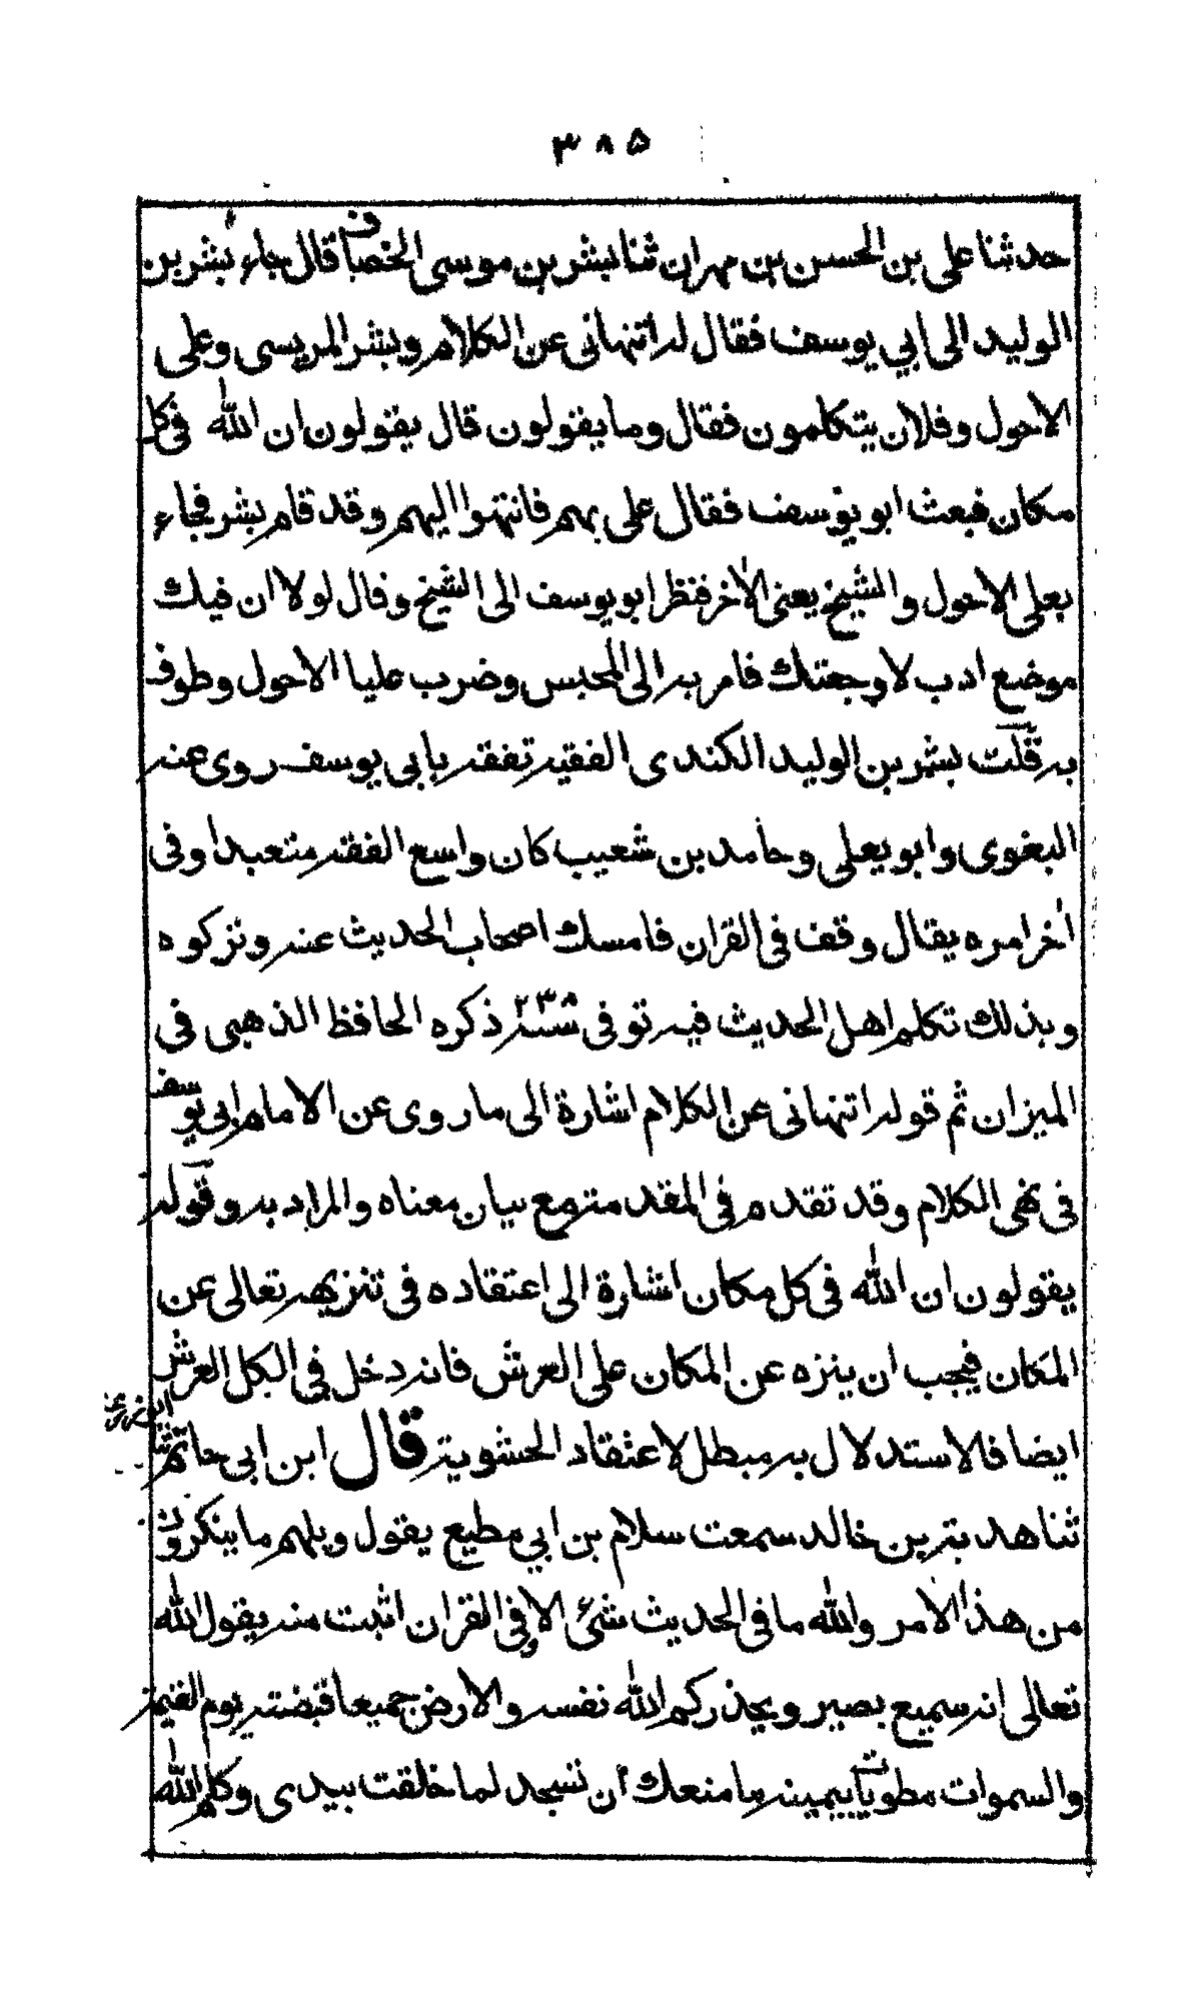 ٣٨٥
حدثنا على بن الحسن بن مهران ثنا بشر بن موسى الخصاف قال جاء بشر بن
الوليد الى ابي يوسف فقال له اتنهانى عن الكلام وبشر المريسى وعلى
الاحول وفلان يتكلمون فقال وما يقولون قال يقولون ان الله فى كل
مكان فبعث ابو يوسف فقال على بهم فانتهوا اليهم وقد قام بشر فجاء
بعلى الاحول والشيخ يعنى الأخر فنظر ابو يوسف الى الشيخ وقال لو لا ان فيك
موضع ادب لاوجعتك فامر به الى المحبس وضرب عليا الاحول وطوف
به قلت بشر بن الوليد الكندى الفقيه تفقه بابى يوسف روى عنه
البغوى وابو يعلى وحامد بن شعيب كان واسع الفقه متعبدا وفى
أخر امره يقال وقف فى القران فامسك اصحاب الحديث عنه وتركوه
وبذلك تكلم اهل الحديث فيه توفى سنة ٢٣٨ ذكره الحافظ الذهبى فى
الميزان ثم قوله اتنهانى عن الكلام اشارة الى ما روى عن الامام ابى يوسف
فى نهى الكلام وقد تقدم فى المقدمة مع بيان معناه والمراد به وقوله
يقولون ان الله فى كل مكان اشارة الى اعتقاده فى تنزيهه تعالى عن
المكان فيجب ان ينزه عن المكان على العرش فانه دخل فى الكل العرش
ايضا فالاستدلال به مبطل لاعتقاد الحشوية قال ابن ابى حاتم ثنا
ابو زرعة
ثنا هدبة بن خالد سمعت سلام بن ابي مطيع يقول ويلهم ما ينكرون
من هذا الأمر والله ما فى الحديث شئ الا وفى القران اثبت منه يقول الله
تعالى انه سميع بصير ويحذركم الله نفسه والارض جميعا قبضته يوم القيمة
والسموات مطويات بيمينه ما منعك أن تسجد لما خلقت بيدى وكلم الله